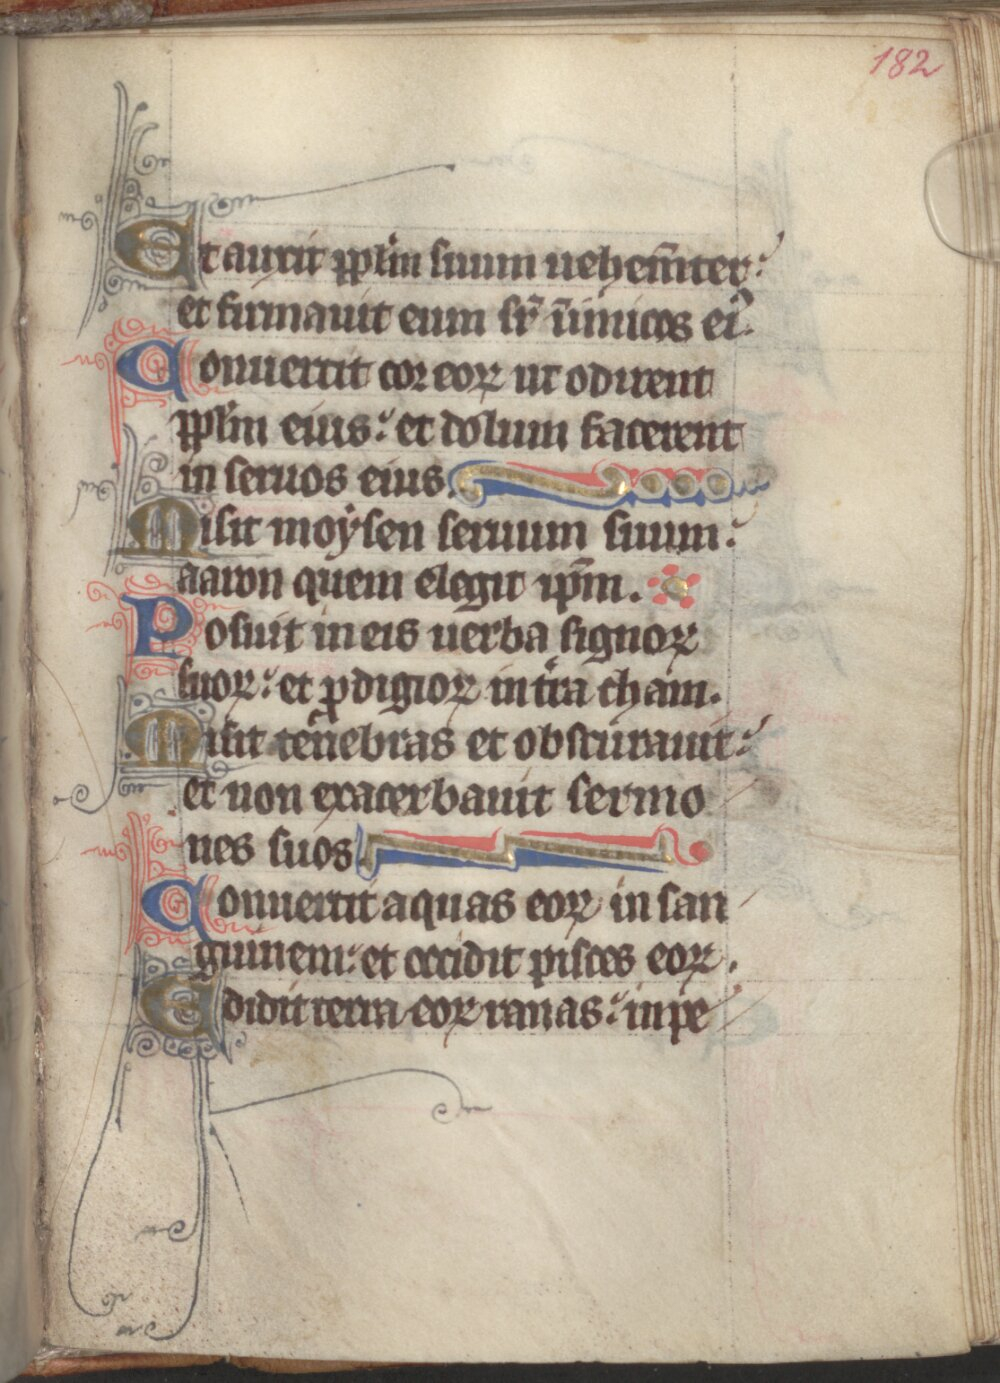 182
Et auxit pplm̄ suum uehem̄ter:
et firmauit eum sr̄ inimicos ei᷒.
Conuertit cor eorꝝ ut odirent
pplm̄ eius: et dolum facerent
in seruos eius.
Misit moẏsen seruum suum:
aaron quem elegit ip̄m.
Posuit in eis uerba signoꝝ
suoꝝ: et ꝓdigioꝝ in tr̄a cham.
Misit tenebras et obscurauit:
et non exacerbauit sermo
nes suos
Conuertit aquas eoꝝ in san
guinem: et occidit pisces eoꝝ.
Edidit terra eoꝝ ranas: in pe